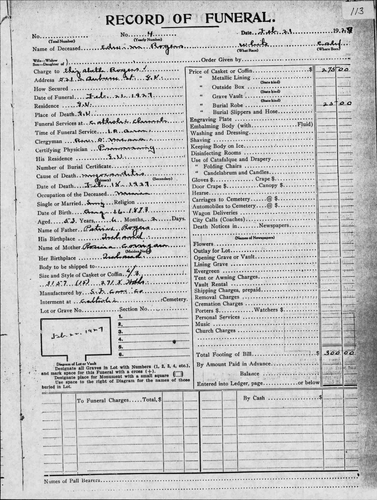 113
RECORD OF FUNERAL.
No. (Total Number) No. 4 (Yearly Number) Date Feb. 21 1927
Name of Deceased Edw. M. Rogers White Calif.
Charge to Elizabeth Rogers Order Given by
Address 521 S. Auburn St. G.V.
How Secured
Date of Funeral Feb. 22, 1927
Place of Death G.V.
Funeral Services at Catholic Church
Time of Funeral Service 10 a.m.
Clergyman
Certifying Physician
His Residence G.V.
Number of Burial Certificate
Cause of Death myocarditis
Date of Death Feb. 18, 1927
Occupation of Deceased Miner
Single or Married Sing Religion
Date of Birth Aug. 16
Aged 53 Years 6 Months 2 Days
Name of Father Patrick Rogers
His Birthplace Ireland
Name of Mother
Her Birthplace Ireland
Body to be shipped to
Size and Style of Casket or Coffin 6/3
Manufactured by
Interment at Catholic Cemetery.
Lot or Grave No. Section No.
Feb. 22, 1927
1.
2.
3.
4.
5.
6.
Diagram of Lot or Vault
Designate all Graves in Lot with Numbers (1, 2, 3, 4, etc.) and mark space for this Funeral with a cross (+).
Designate place for Monument with a small square
Use space to the right of Diagram for the names of those buried in Lot.
Price of Casket or Coffin $ 275 00
" Metallic Lining
" Outside Box
" Grave Vault
" Burial Robe 25 00
" Burial Slippers and Hose
Engraving Plate
Embalming Body (with Fluid)
Washing and Dressing
Shaving
Keeping Body on Ice
Disinfecting Rooms
Use of Catafalque and Drapery
" Folding Chairs
" Candelabrum and Candles
Gloves $ Crape $
Door Crape $ Canopy $
Hearse
Carriages to Cemetery @ $
Automobiles to Cemetery @ $
Wagon Deliveries
City Calls (Coaches)
Death Notices in Newspapers
(Names of Newspapers)
Flowers
Outlay for Lot
Opening Grave or Vault
Lining Grave
Evergreen
Tent or Awning Charges
Vault Rental
Shipping Charges, prepaid
Removal Charges
Cremation Charges
Porters $ Watchers $
Personal Services
Music
Church Charges
Total Footing of Bill $ 300 00
By Amount Paid in Advance
Balance $
Entered into Ledger, page or below
To Funeral Charges Total, $ By Cash $
Names of Pall Bearers